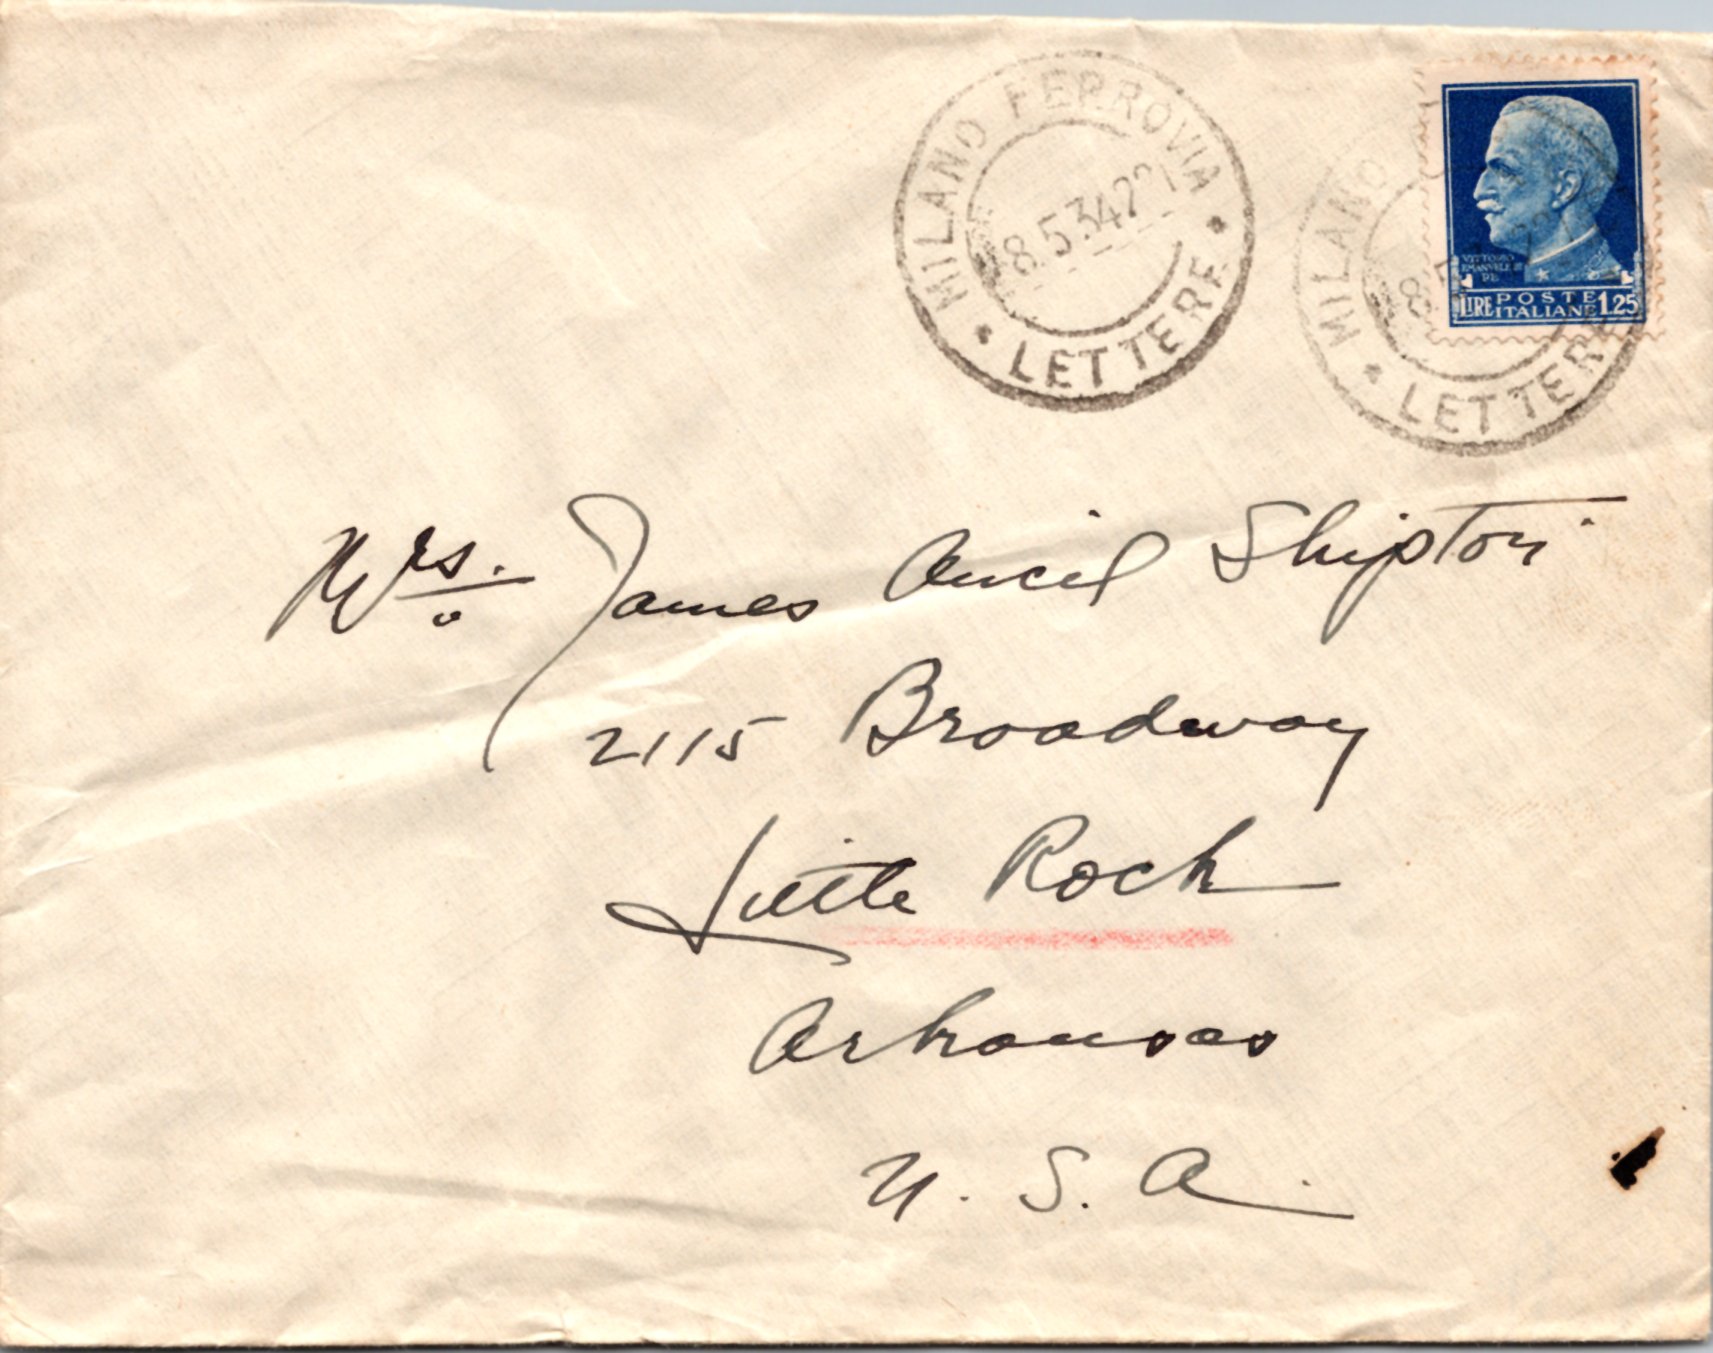 MILANO FERROVIA
8.5.34 22
* LETTERE *
MILANO
8
* LETTERE
VITTORIO
EMANUELE III
RE
POSTE
LIRE ITALIANE 1.25
Mrs. James Ancil Shipton
2115 Broadway
Little Rock
Arkansas
U. S. A.